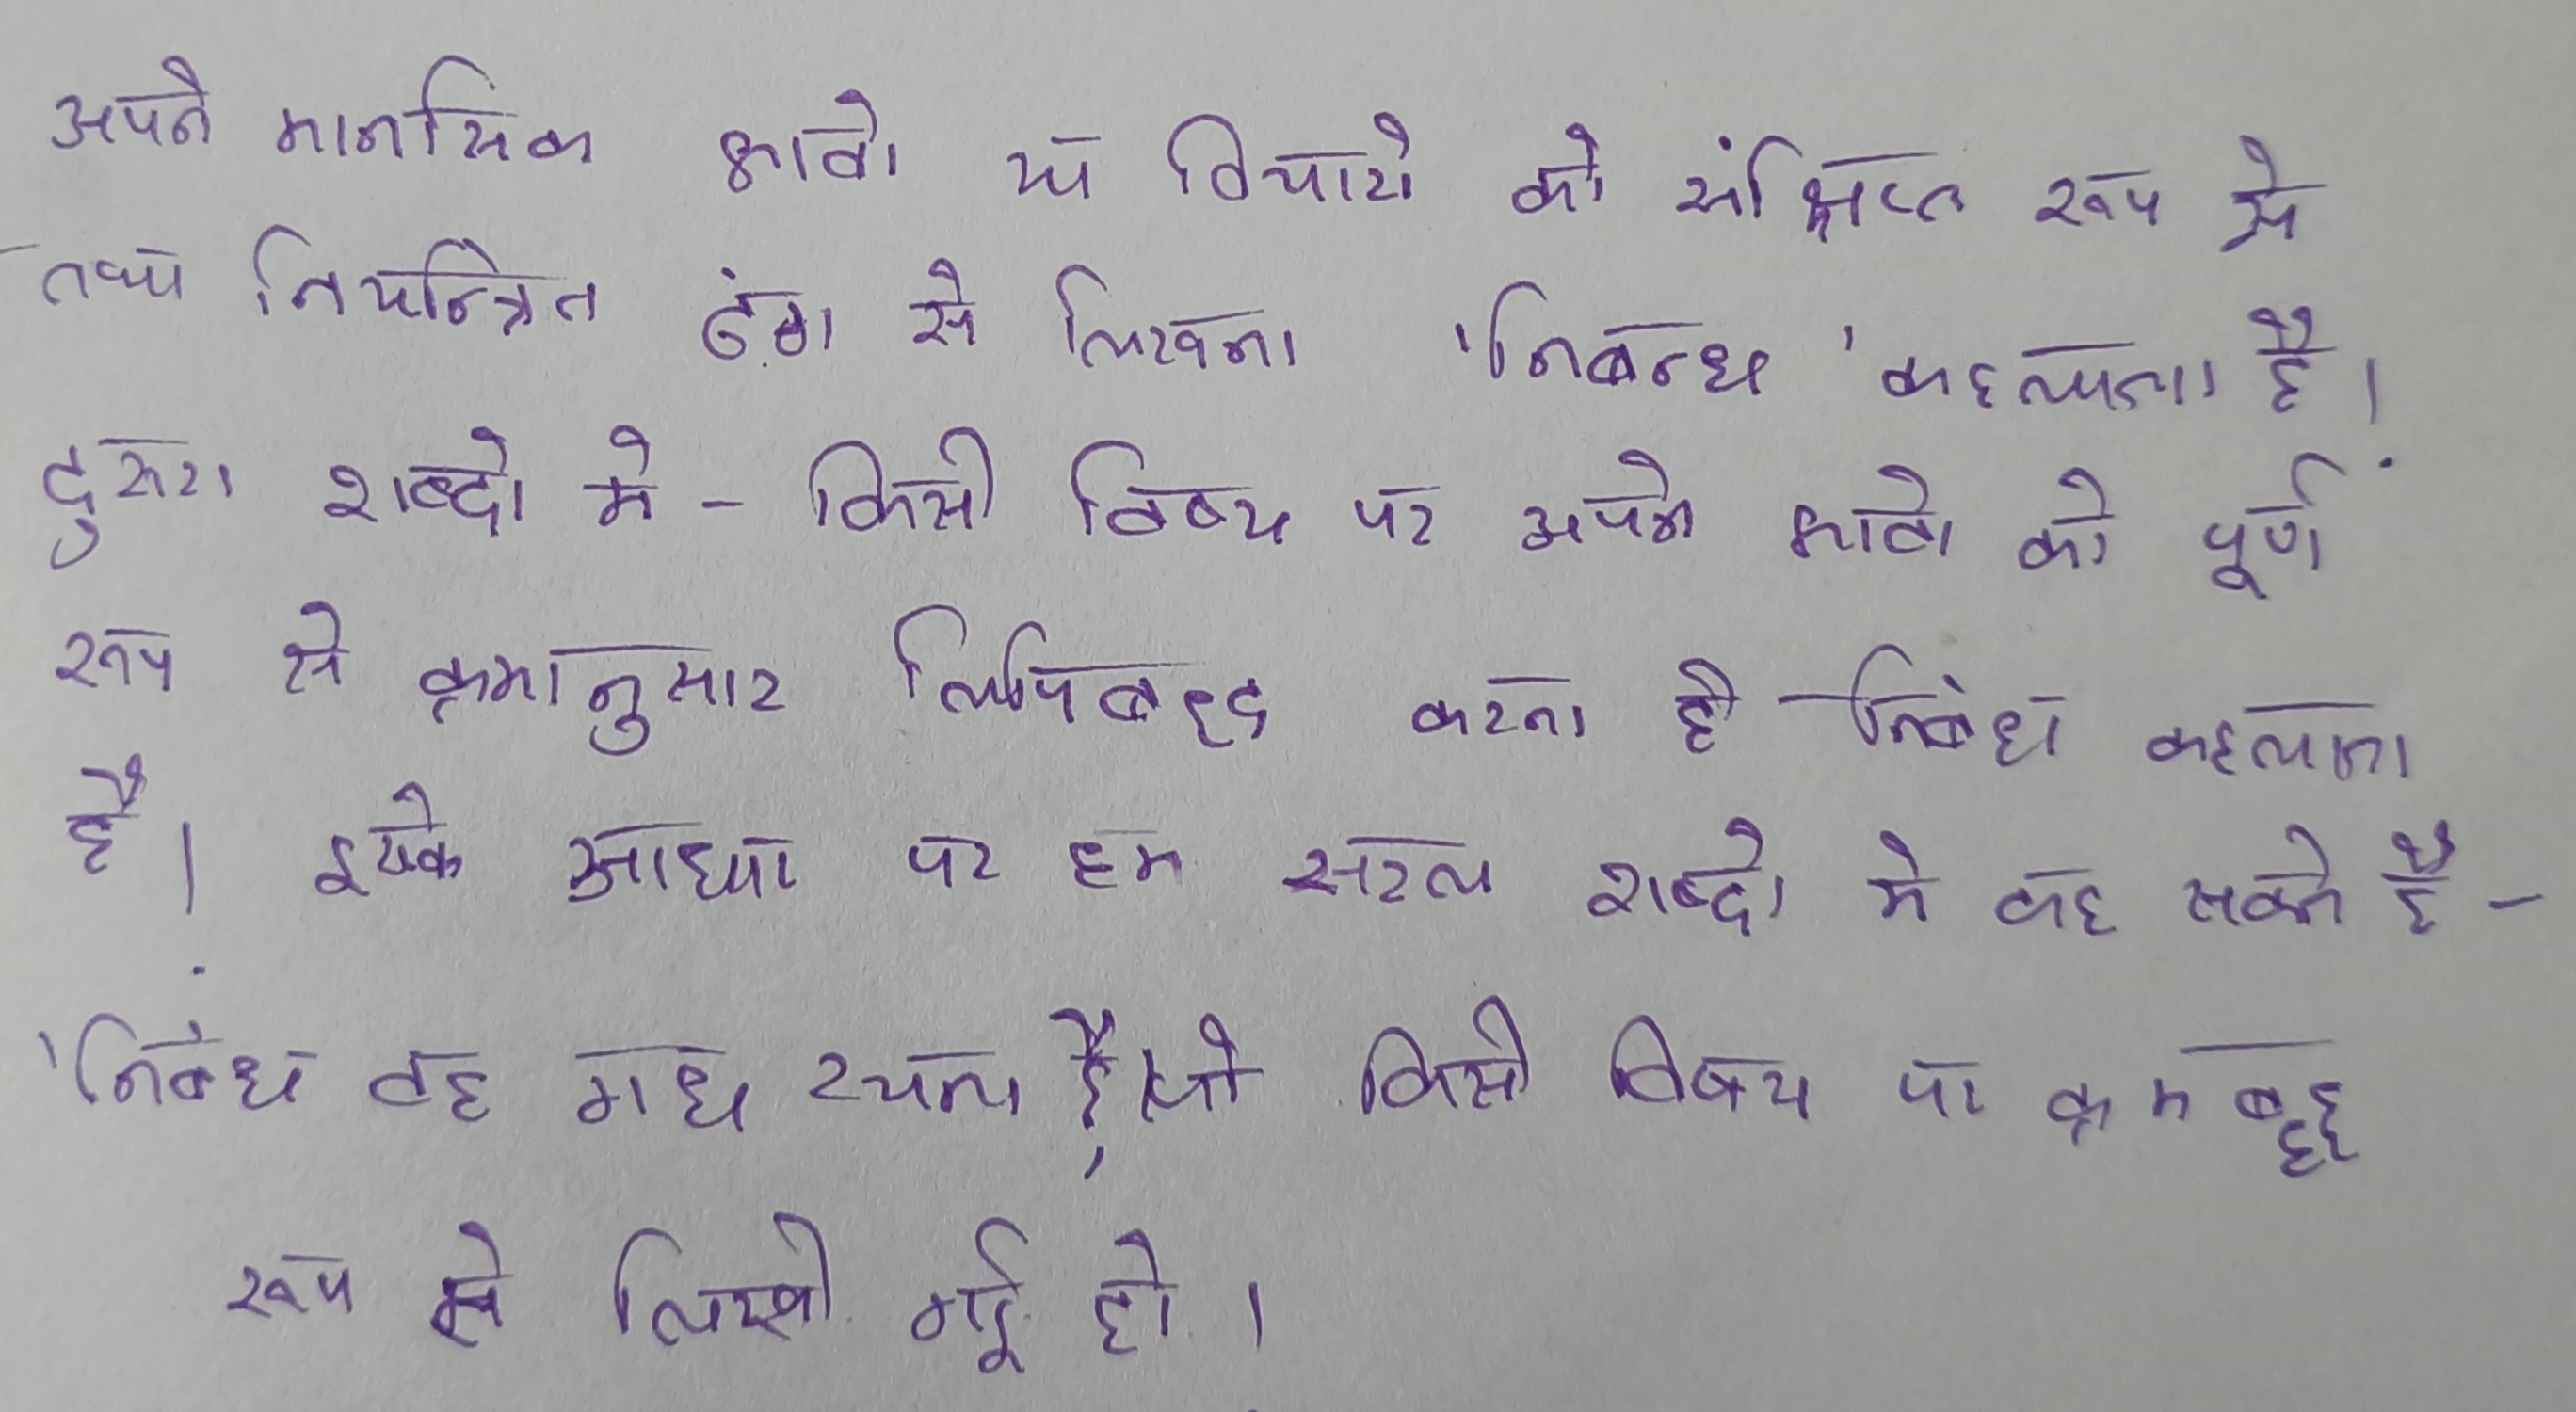 अपने मानसिक भावो या विचारो को संक्षिप्त रूप से
तथा नियन्त्रित ढंग से लिखना 'निबन्ध' कहलाता है।
दुसरा शब्दो मे - किसी विषय पर अपने भावो को पूर्ण
रूप से क्रमानुसार लिपिबद्ध करना ही निबंध कहलाता
है। इसके आधा पर हम सरल शब्दो मे कह सकते है -
'निबंध वह गद्य रचना है, जो किसी विषय पर क्रमबद्ध
रूप से लिखी गई हो।